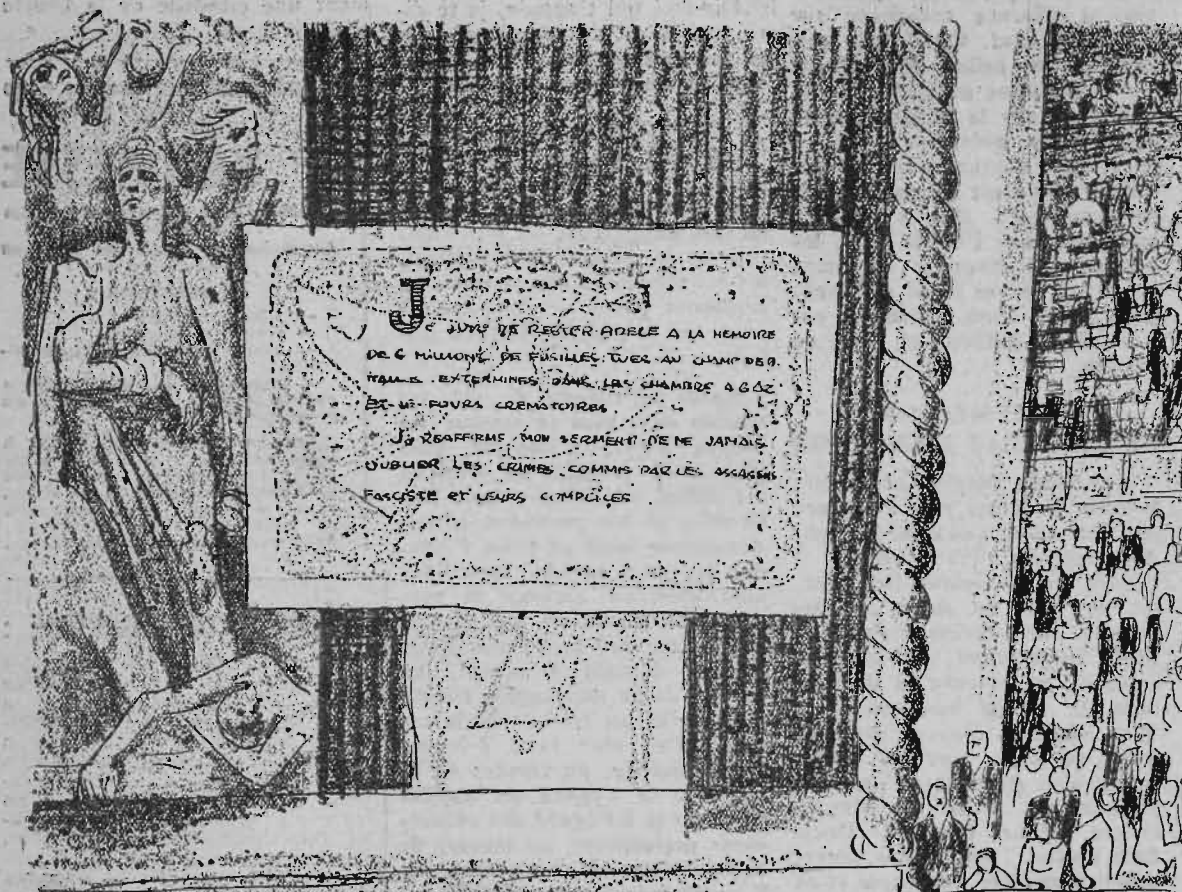 JE JURE DE RESTER ADELE A LA MEMOIRE
DE 6 MILLIONS DE FUSILLES TUER AU CHAMP DE B
EXTERMINES DANS LES CHAMBRE A GAZ
ET FOURS CREMATOIRES
JE REAFFIRME MON SERMENT DE NE JAMAIS
OUBLIER LES CRIMES COMMIS PAR LES ASSASSINS
FASCISTE ET LEURS COMPLICES